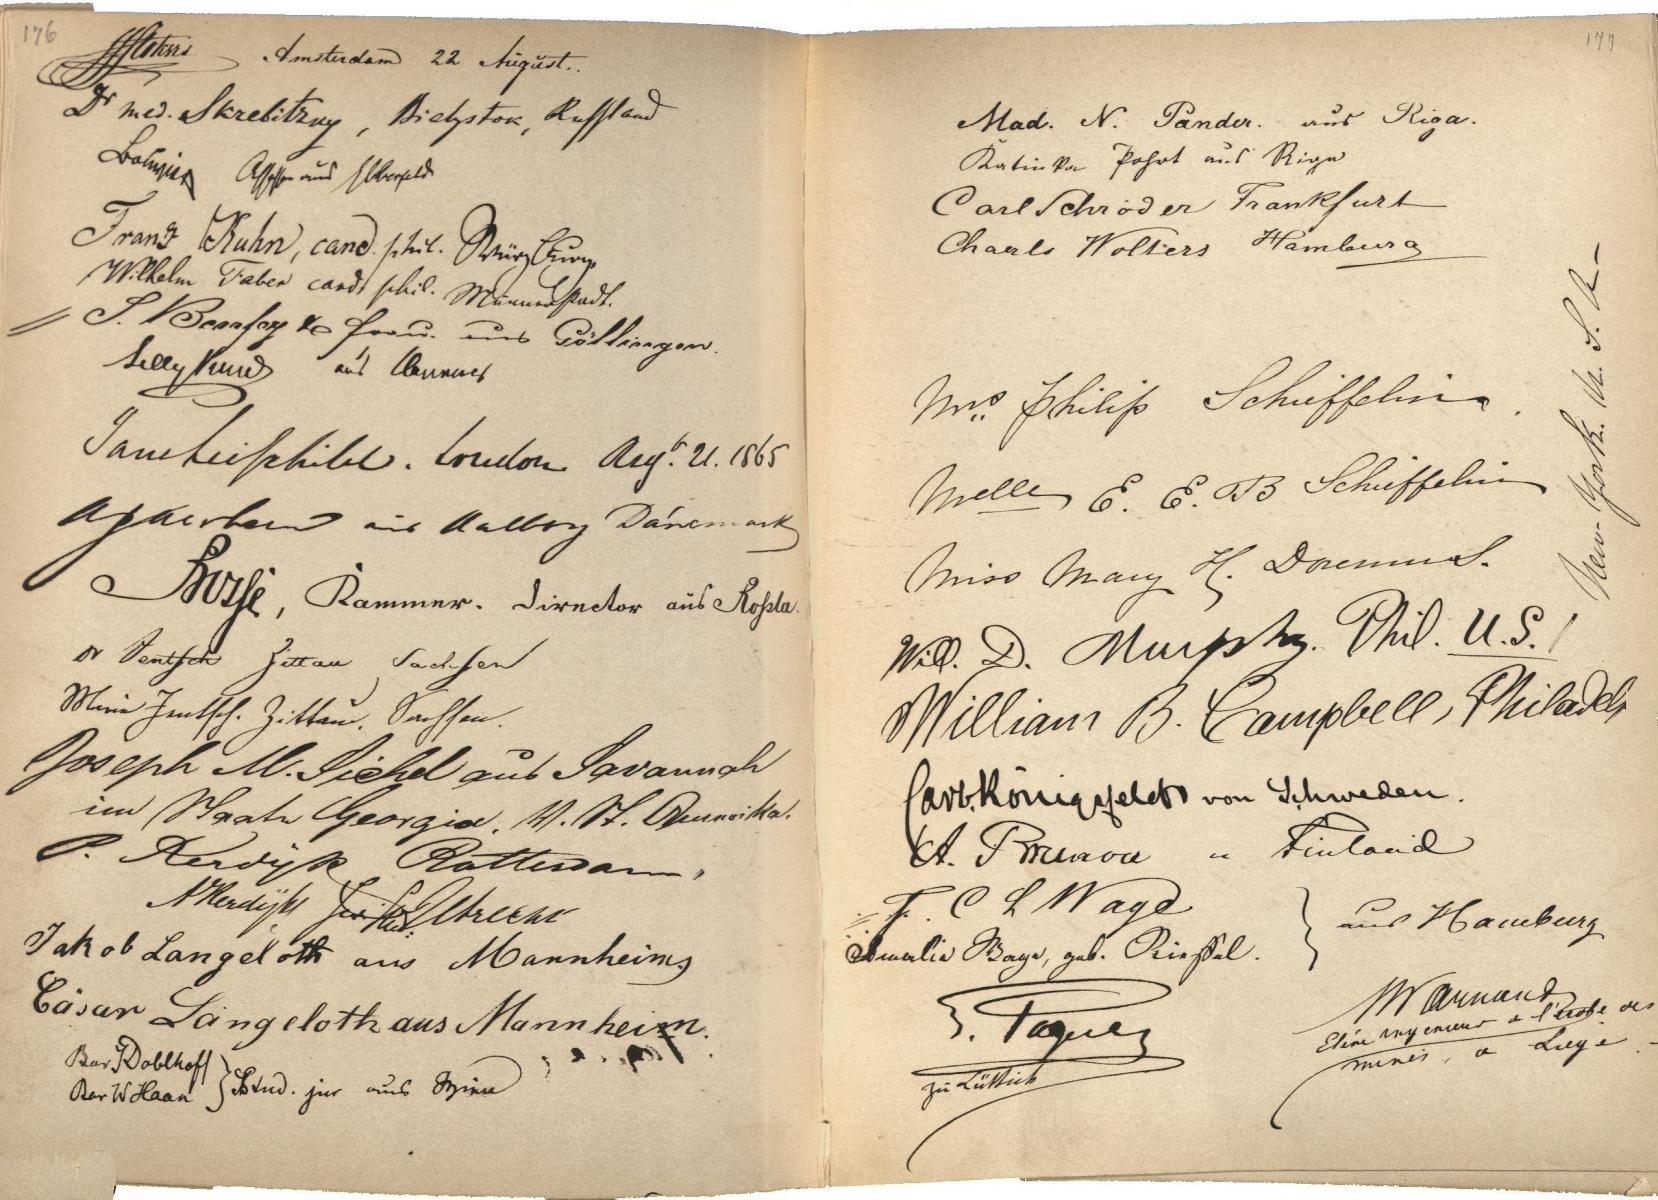 176
Amsterdam 22 August.
Dr med. Skrebitzky, Bielystok, Russland
aus Elberfeld
Franz Kuhn, cand. phil. Würzburg
Wilhelm Faber cand. phil. Münnerstadt.
S. Benfey & Frau. aus Göttingen.
aus
London Augt. 21. 1865
aus Aalborg Dänemark
Busse, Kammer. Director aus Roßla.
Dr Jentsch Zittau Sachsen
Minna Jentsch. Zittau. Sachsen.
Joseph M. Sichel aus Savannah
im Staate Georgia. V. St. Amerika.
P. Kerdijk Rotterdam,
A Kerdijk Utrecht
Jakob Langeloth aus Mannheim
Cäsar Langeloth aus Mannheim.
Bar J Doblhoff
Bar W Haan } Stud. jur aus Wien
177
Mad. N. Pander. aus Riga.
Katinka Pohrt aus Riga
Carl Schröder Frankfurt
Charls Wolters Hamburg
Mrs. Philip Schieffelin.
Melle E. E. B Schieffelin
Miss Mary H. Doremus.
New York. U. S. A-
Will. D. Murphy. Phil. U.S.
William B. Campbell, Philadel
Carl. Königsfeldt von Schweden.
" Finland
F. C L Wage
Amalia Wage, geb. Rießel.
} aus Hamburg
J. Paquez
zu Lüttich
Warnant
Elève ingénieur à l'école des
mines, à Liège.